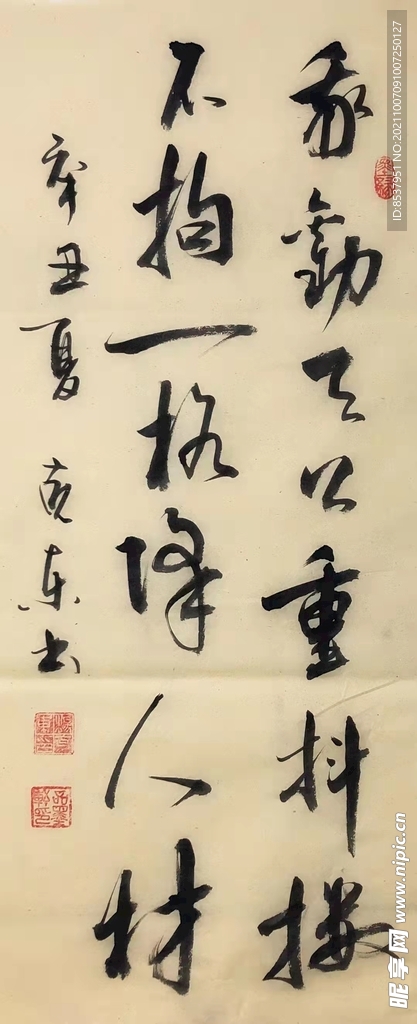 我勸天公重抖擻
不拘一格降人材
辛丑夏 克東书
ID:8537951 NO:20211007091007250127
昵享网 www.nipic.cn